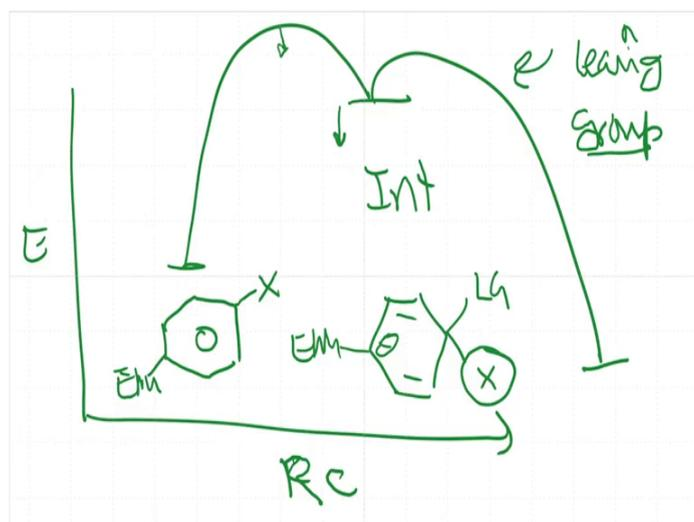 leaving
group
Int
E
X
LG
EWG
EWG
X
RC